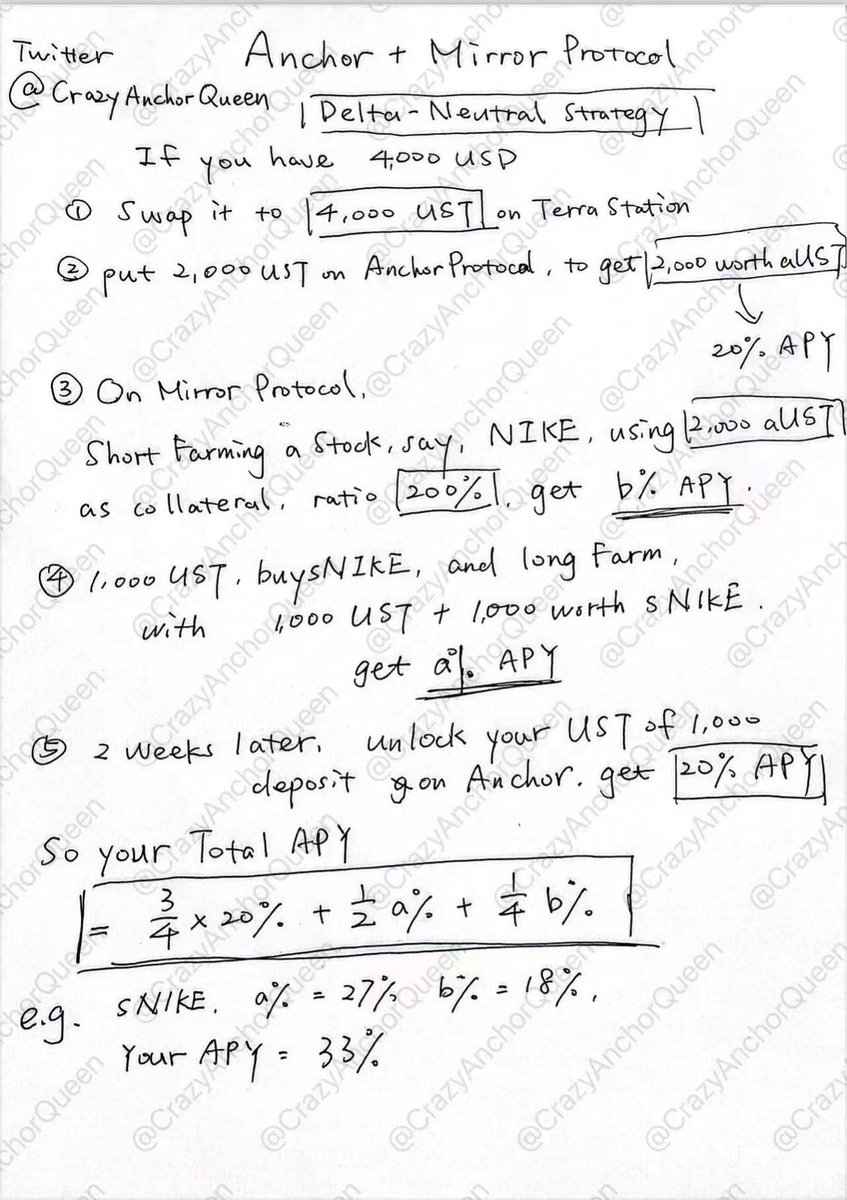 Twitter
@CrazyAnchorQueen
Anchor + Mirror Protocol
Delta-Neutral Strategy
If you have 4,000 USD
① Swap it to 4,000 UST on Terra Station
② put 2,000 UST on Anchor Protocol, to get 2,000 worth aUST
20% APY
③ On Mirror Protocol,
Short Farming a Stock, say, NIKE, using 2,000 aUST
as collateral, ratio 200%, get b% APY.
④ 1,000 UST, buy sNIKE, and long Farm,
with 1,000 UST + 1,000 worth sNIKE.
get a% APY
⑤ 2 weeks later, unlock your UST of 1,000
deposit on Anchor. get 20% APY
So your Total APY
= 3/4 x 20% + 1/2 a% + 1/4 b%
e.g. sNIKE, a% = 27% b% = 18%,
Your APY = 33%
@CrazyAnchorQueen